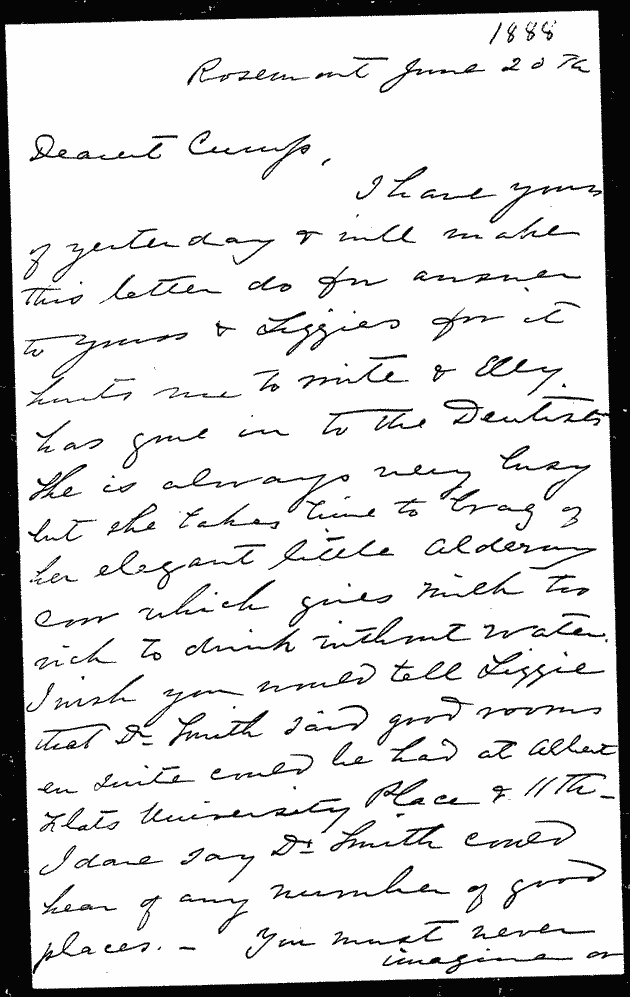 1888
Rosemont June 20 Th
Dearest Cump,
I have yours
of yesterday & will make
this letter do for answer
to yours & Lizzies for it
hurts me to write & Elly.
has gone in to the Dentists
She is always very busy
but she takes time to brag of
her elegant little Alderny
cow which gives milk too
rich to drink without water.
I wish you would tell Lizzie
that Dr Smith said good rooms
en suite could be had at Albert
Flats University Place & 11Th -
I dare say Dr Smith could
hear of any number of good
places. - You must never
imagine or